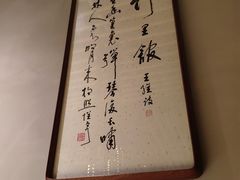 竹里館 王維詩
篁裏彈琴復長嘯
林人不知明月來相照